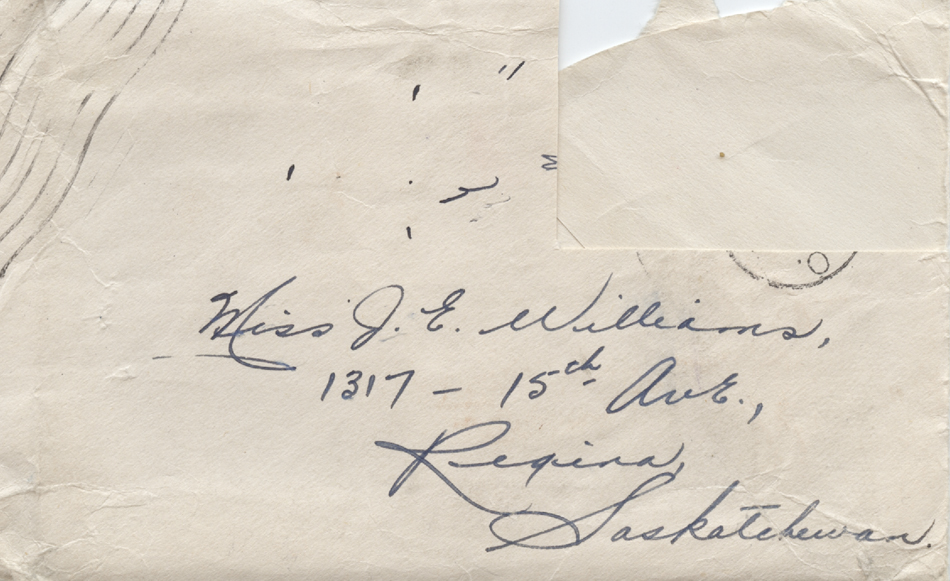 Miss J. E. Williams,
1317 - 15th AvE.,
Regina,
Saskatchewan.